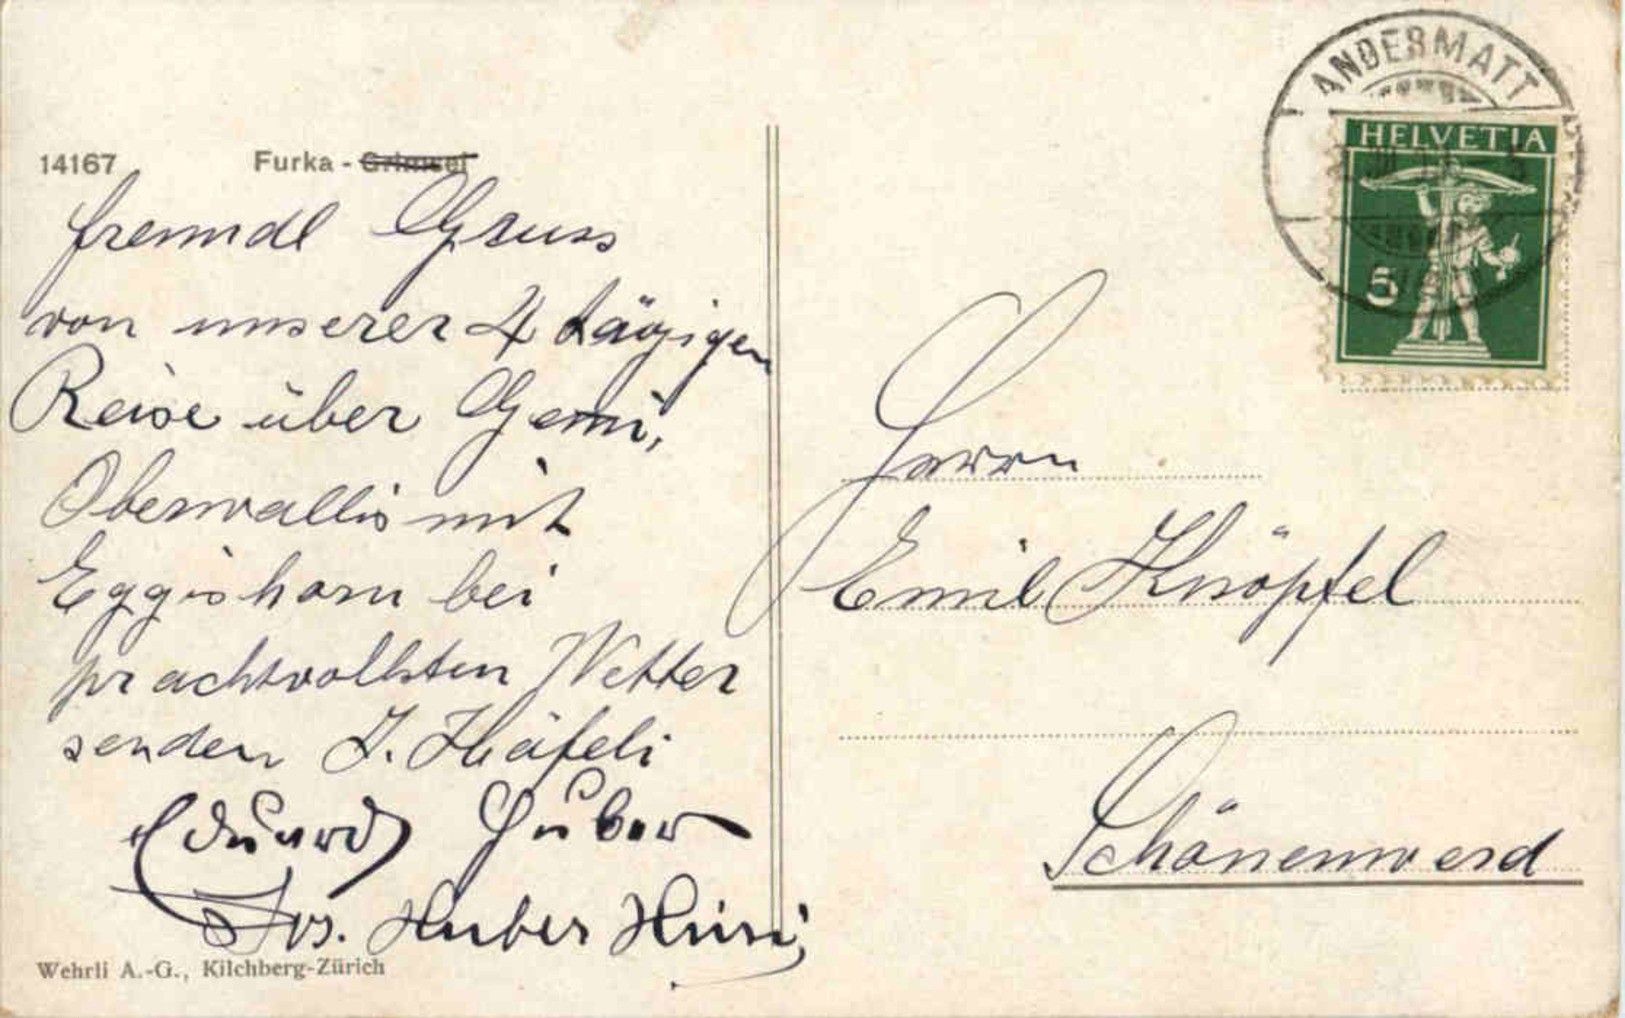 14167 Furka - Grimsel
freundl Gruss
von unserer 4 tägigen
Reise über Gemi,
Oberwallis mit
Eggishorn bei
prachtvollsten Wetter
senden J. Häfeli
Eduard Huber
Jos. Huber
Wehrli A.-G., Kilchberg-Zürich
ANDERMATT
HELVETIA
5
Herrn
Emil Knöpfel
Schönenwerd